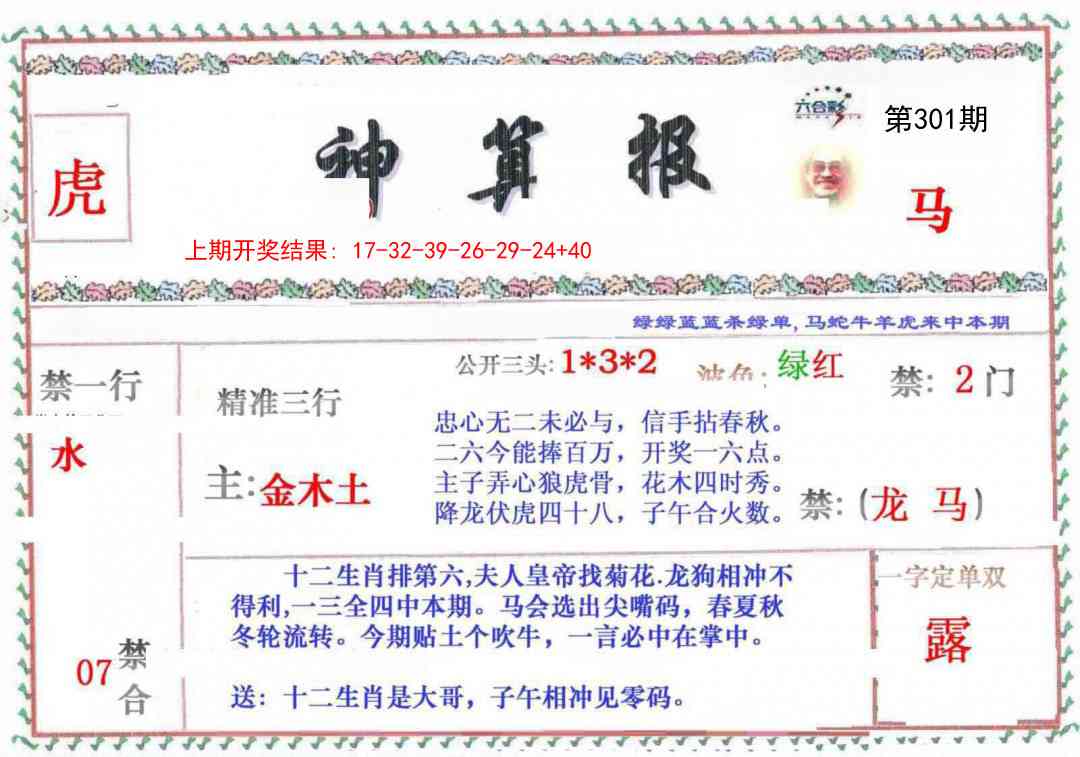 六合彩
第301期
神算报
虎
马
上期开奖结果: 17-32-39-26-29-24+40
绿绿蓝蓝杀绿单,马蛇牛羊虎来中本期
公开三头:1*3*2
波色: 绿红
禁: 2门
禁一行
水
精准三行
主:金木土
忠心无二未必与，信手拈春秋。
二六今能捧百万，开奖一六点。
主子弄心狼虎骨，花木四时秀。
降龙伏虎四十八，子午合火数。
禁:(龙 马)
十二生肖排第六,夫人皇帝找菊花.龙狗相冲不
得利,一三全四中本期。马会选出尖嘴码，春夏秋
冬轮流转。今期贴土个吹牛，一言必中在掌中。
送：十二生肖是大哥，子午相冲见零码。
一字定单双
露
07禁
合